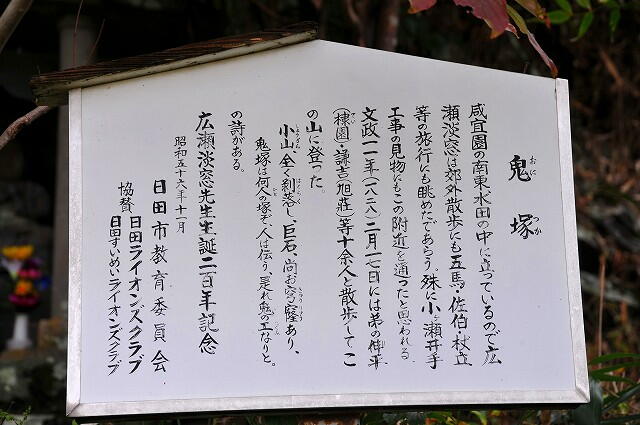 鬼塚
おに つか
咸宜園の南東水田の中に立っているので広
瀬淡窓は郊外散歩にも五馬・佐伯・杖立
等の旅行にも眺めたであらう。殊に小ヶ瀬井手
工事の見物にもこの附近を通ったと思われる。
文政一一年(一八二八)二月一七日には弟の伸平
(棣園・謙吉旭荘)等十余人と散歩してこ
の山に登った。
小山全く剝落し、巨石、尚お穹窿あり、
鬼塚は何人の塚ぞ、人は伝う、是れ鬼の工なりと。
の詩がある。
広瀬淡窓先生生誕二百年記念
昭和五十六年十一月
日田市教育委員会
協賛 日田ライオンズクラブ
日田すいめいライオンズクラブ